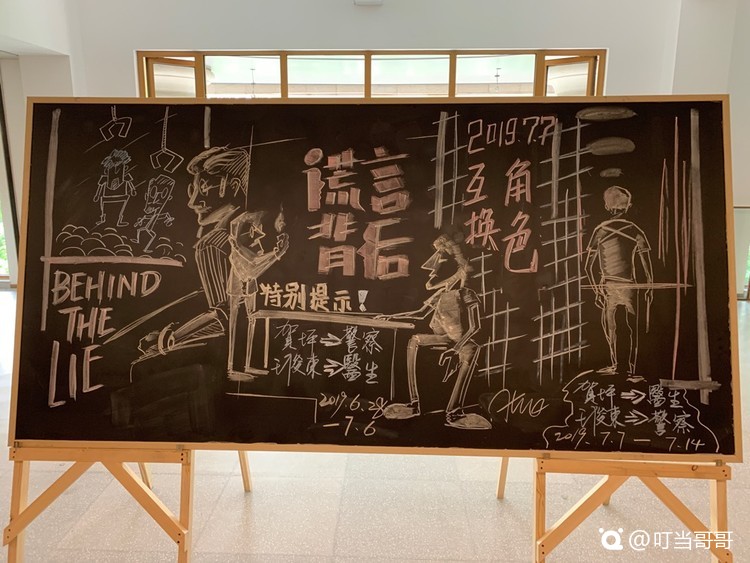 谎言
背后
BEHIND
THE
LIE
2019.7.7
互换
角色
特别提示!
賀坪⇒警察
王俊東⇒醫生
2019.6.28
-7.6
賀坪⇒醫生
王俊東⇒警察
2019.7.7-7.14
@叮当哥哥